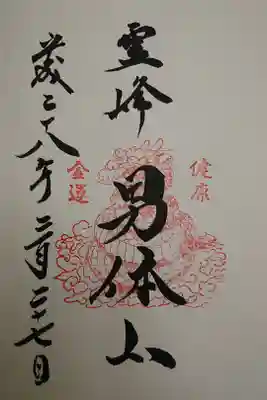 健康
霊峰
男体山
金運
平成二八年二月二十七日